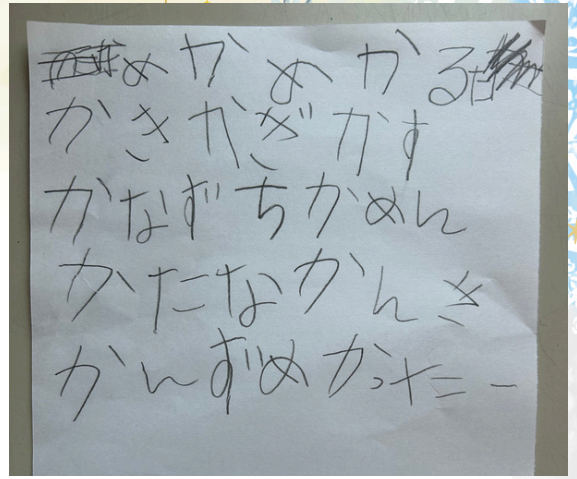 めかめかるた
かきかぎかす
かなずちかめん
かたなかんき
かんずめかったー